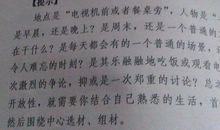 【提示】
地点是“电视机前或者餐桌旁”，人物是
是早晨，还是晚上？是周末，还是一个普通的
在干什么？是每天都会有的一个普通的场景，
令人难忘的时刻？是其乐融融地吃饭或观看电
次激烈的争论，抑或是一次郑重的讨论？总之
开放性，就需要你结合自己熟悉的生活，首
然后围绕中心选材、组材。